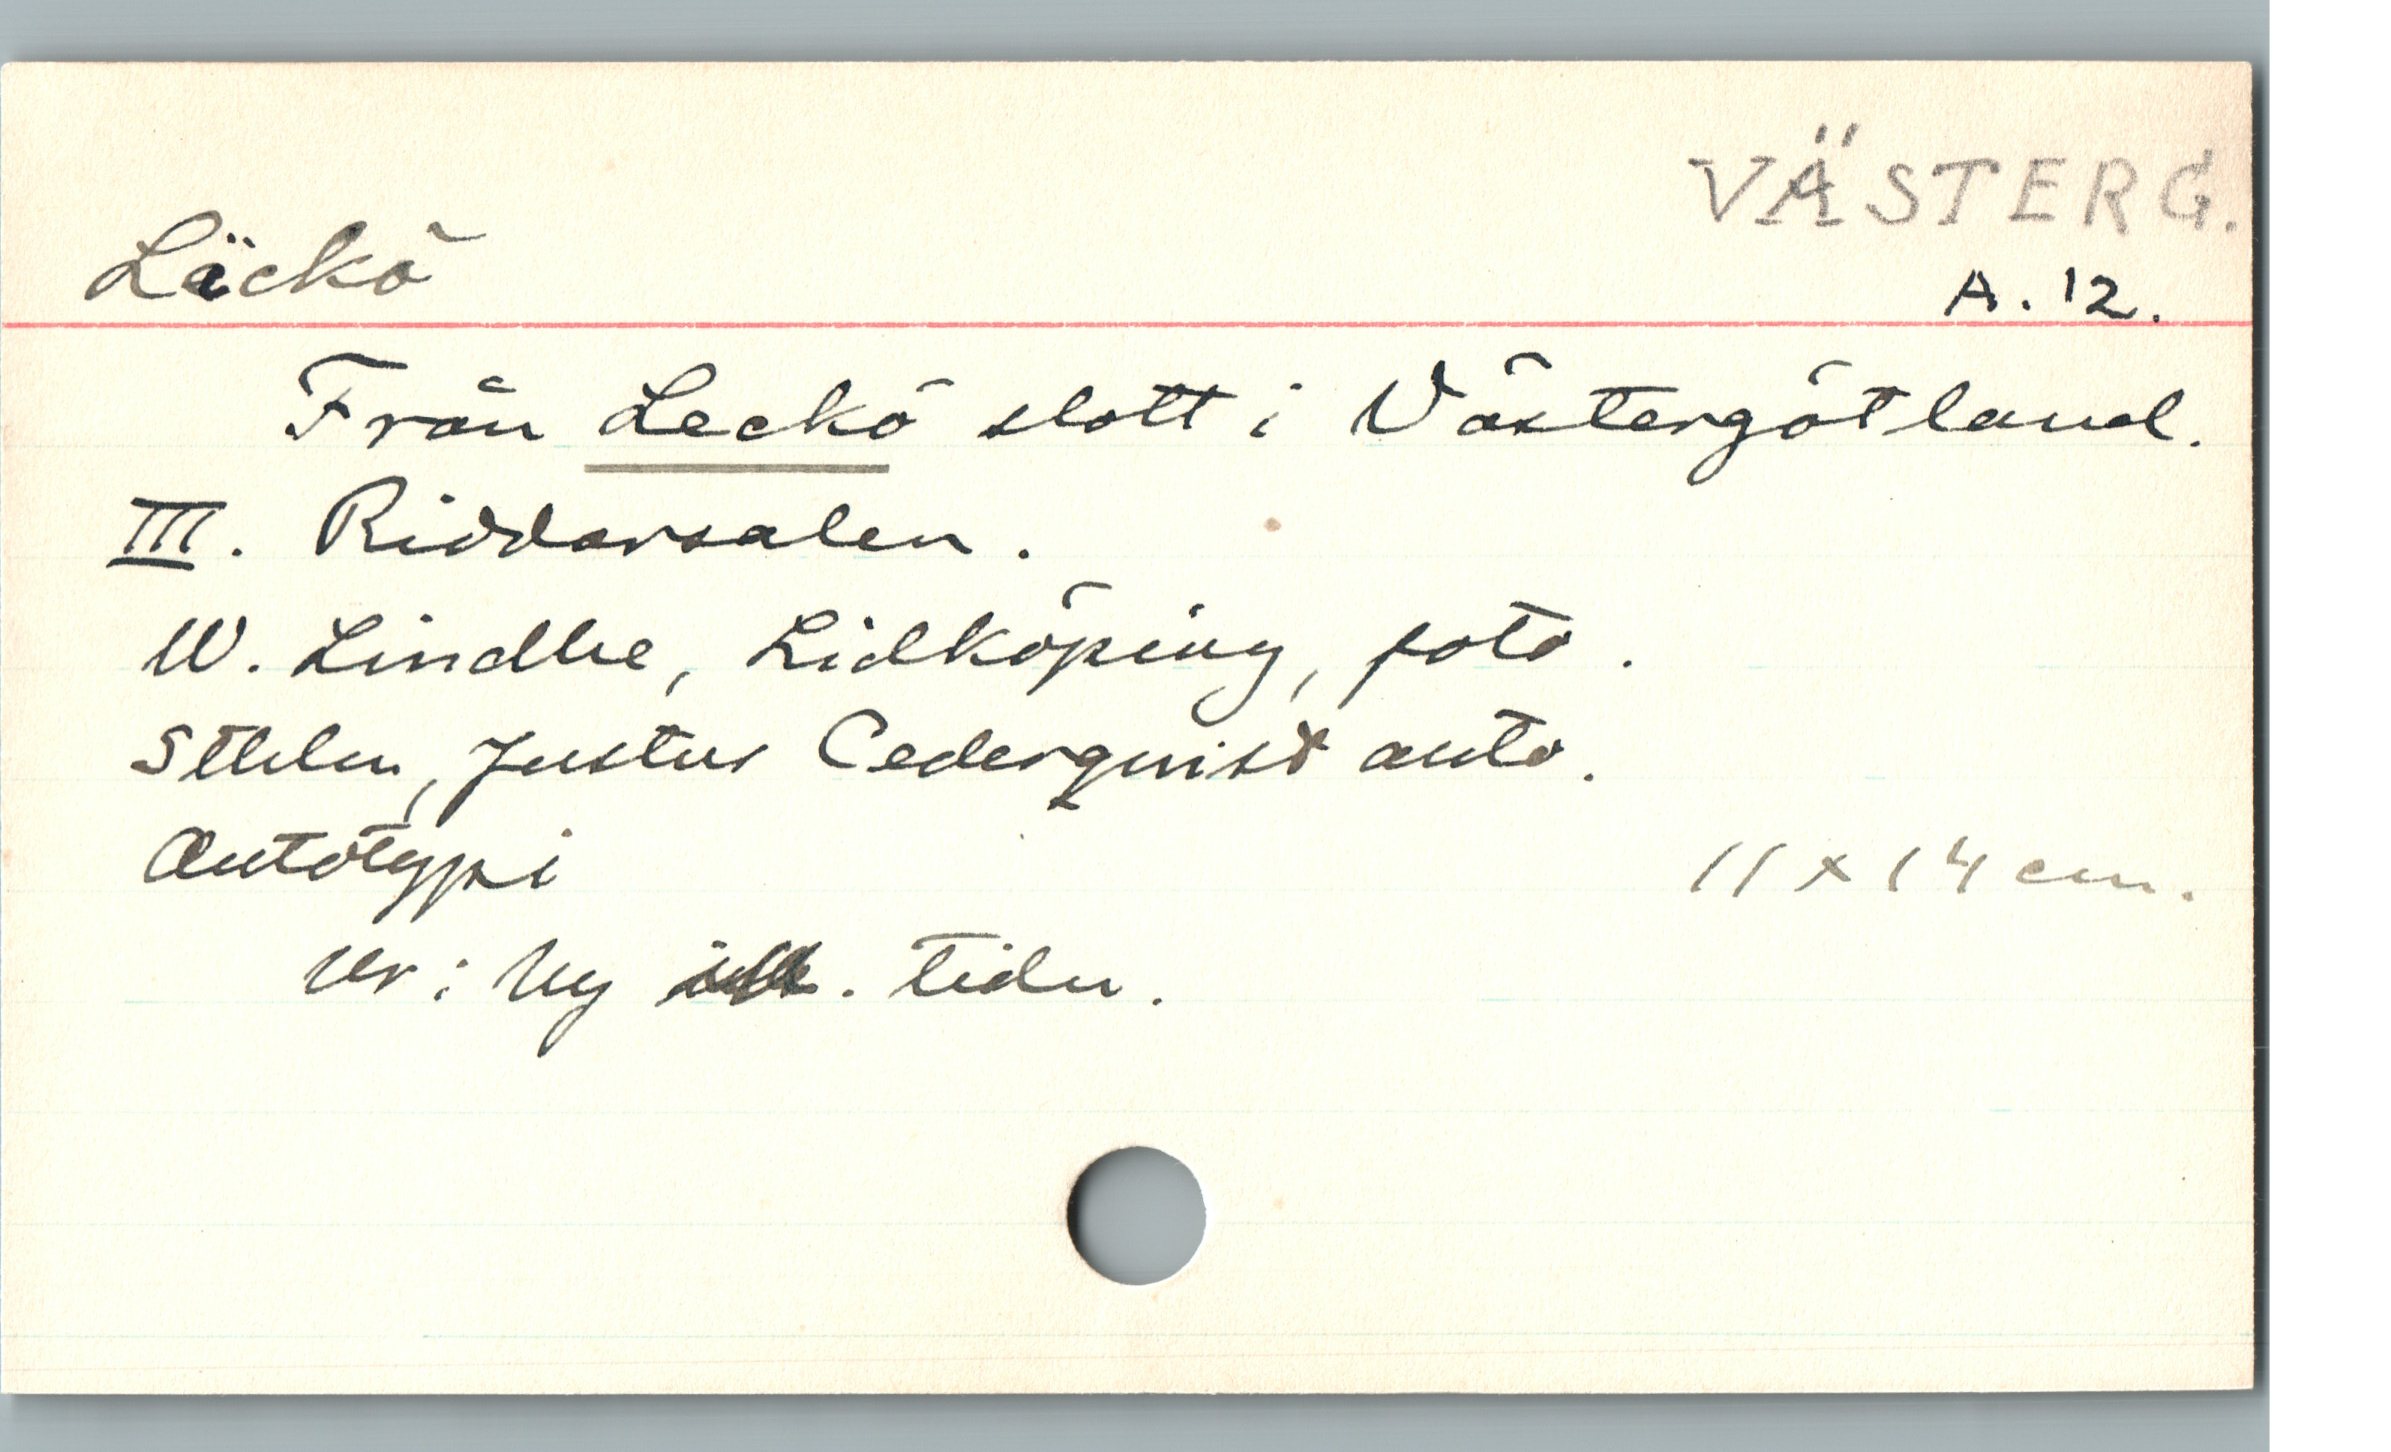 VÄSTERG.
Läckö
A. 12.
Från Leckö slott i Västergötland.
III. Riddarsalen.
W. Lindhe, Lidköping, foto.
Sthlm, Justus Cederquist auto.
Autotypi
11 x 14 cm.
Ur: Ny ill. tidn.